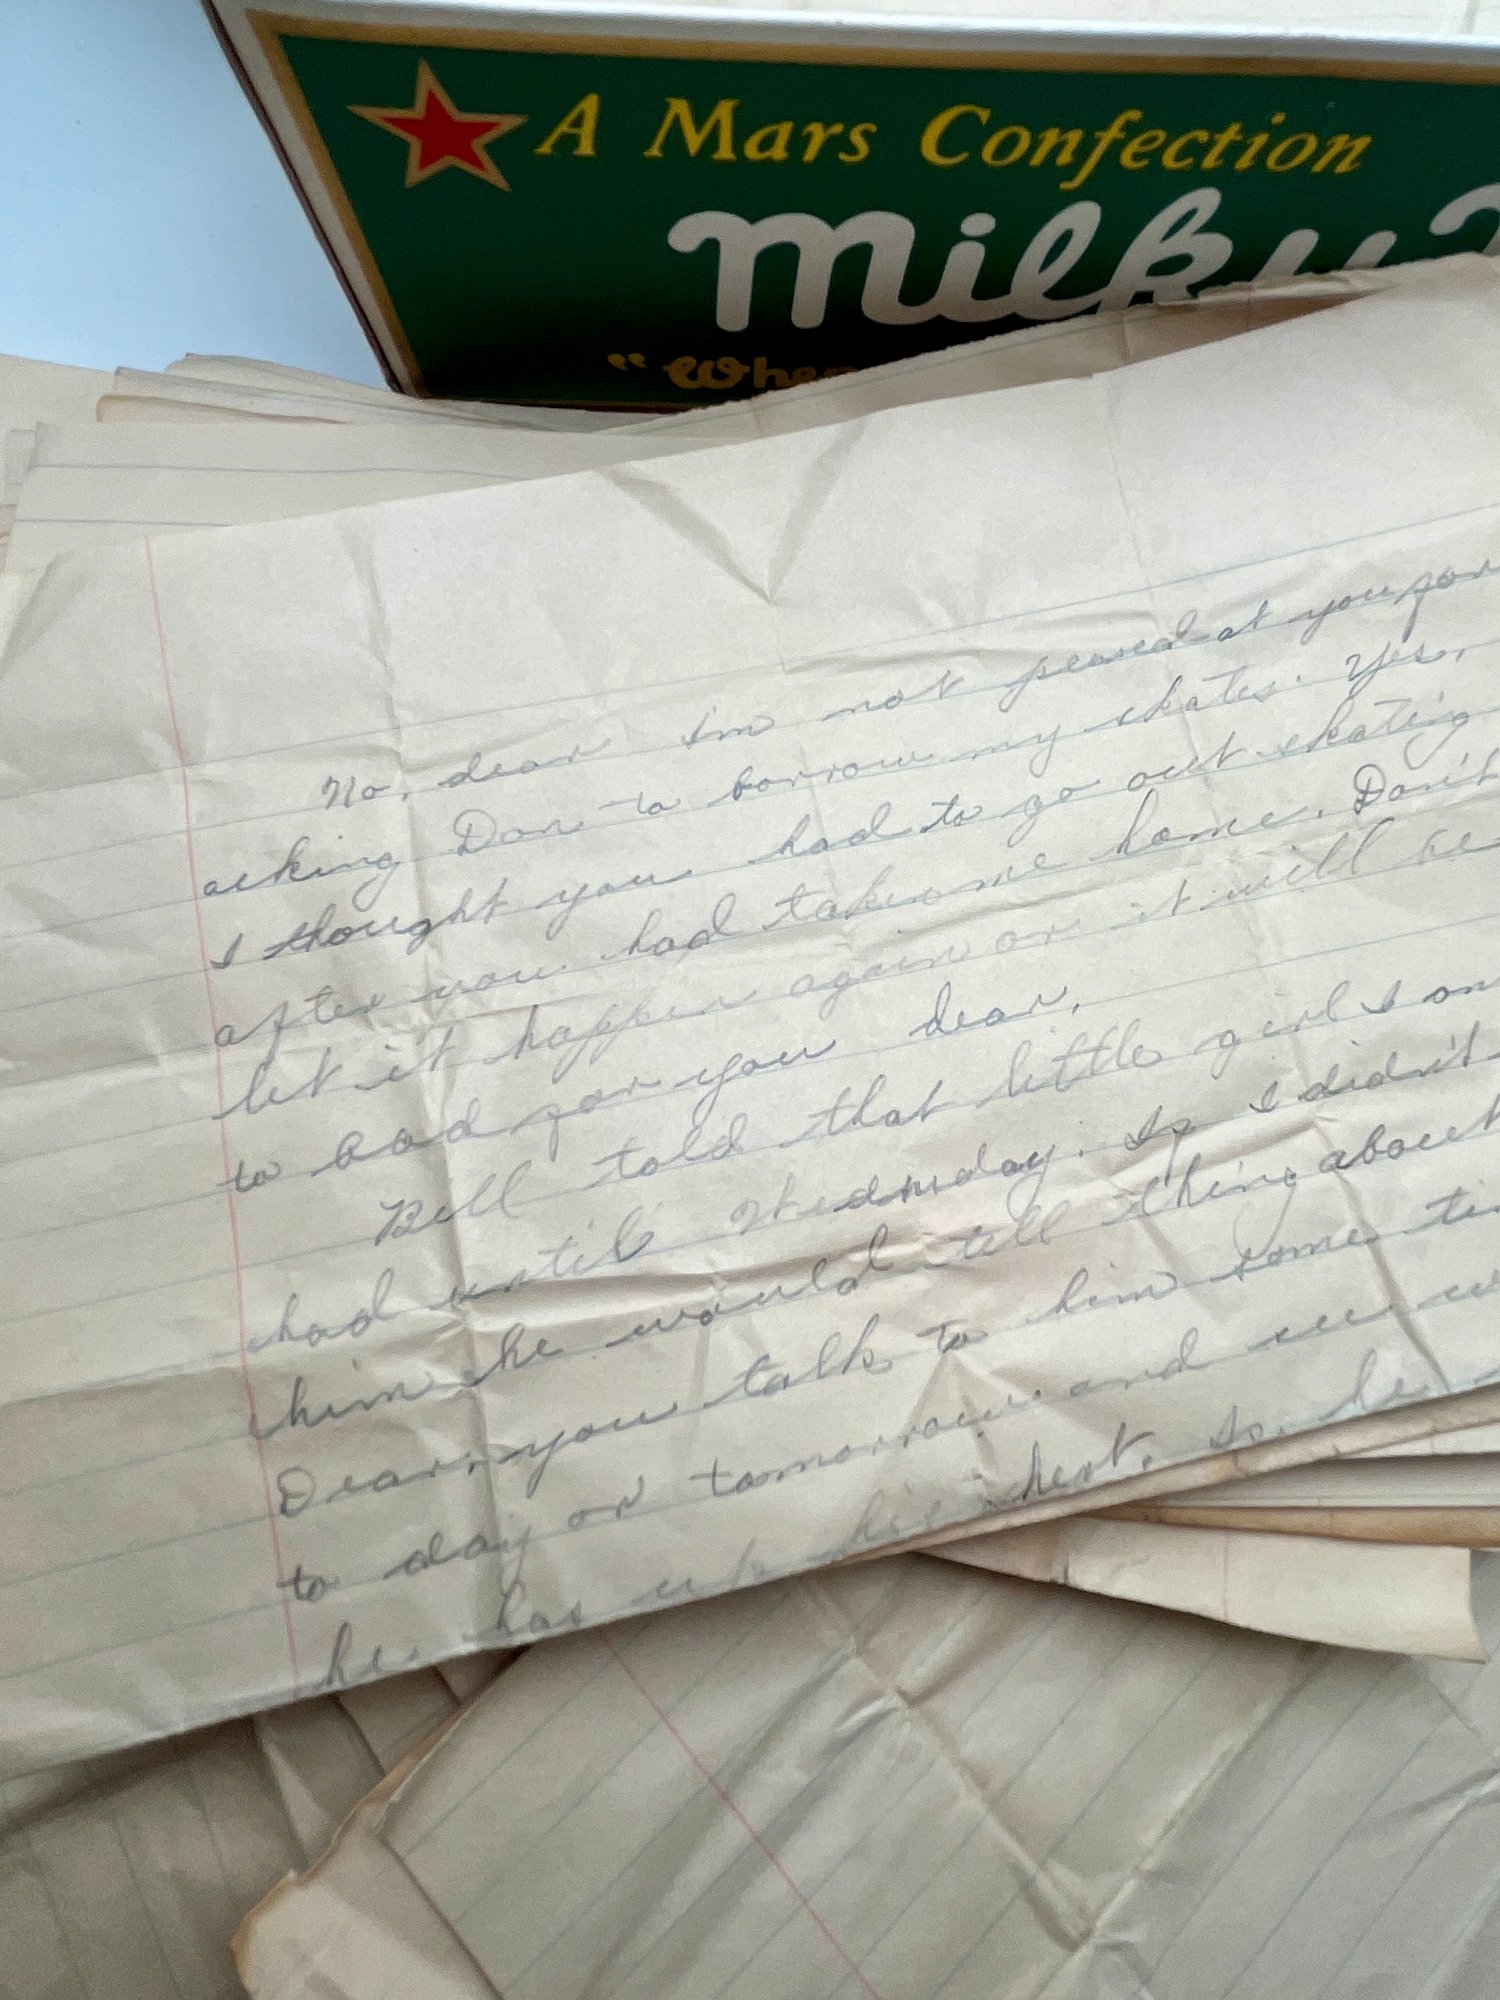 A Mars Confection
Milky
"When
No, dear I'm not peaved at you for
asking Don to borrow my skates. Yes,
I thought you had to go out skating
after you had taken me home. Don't
let it happen again or it will be
to bad for you dear.
Bill told that little girl I on
had until Wednesday. So I didn't
him he would tell thing about
Dear, you talk to him some ti
to day or tomorrow and see w
he has up his chest. So he